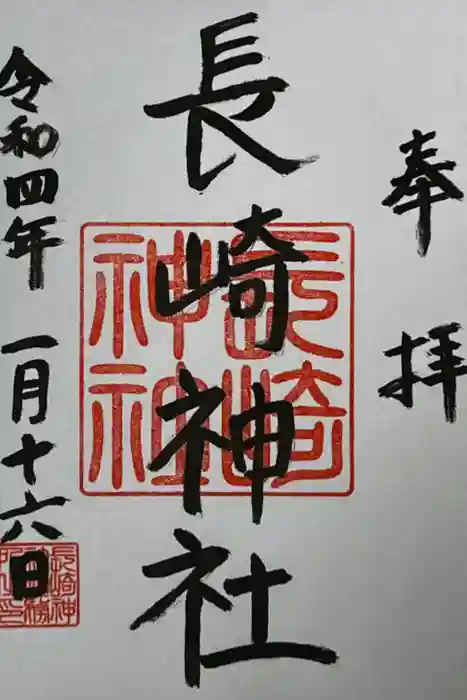 奉拝
長崎神社
長崎神社
令和四年 一月十六日